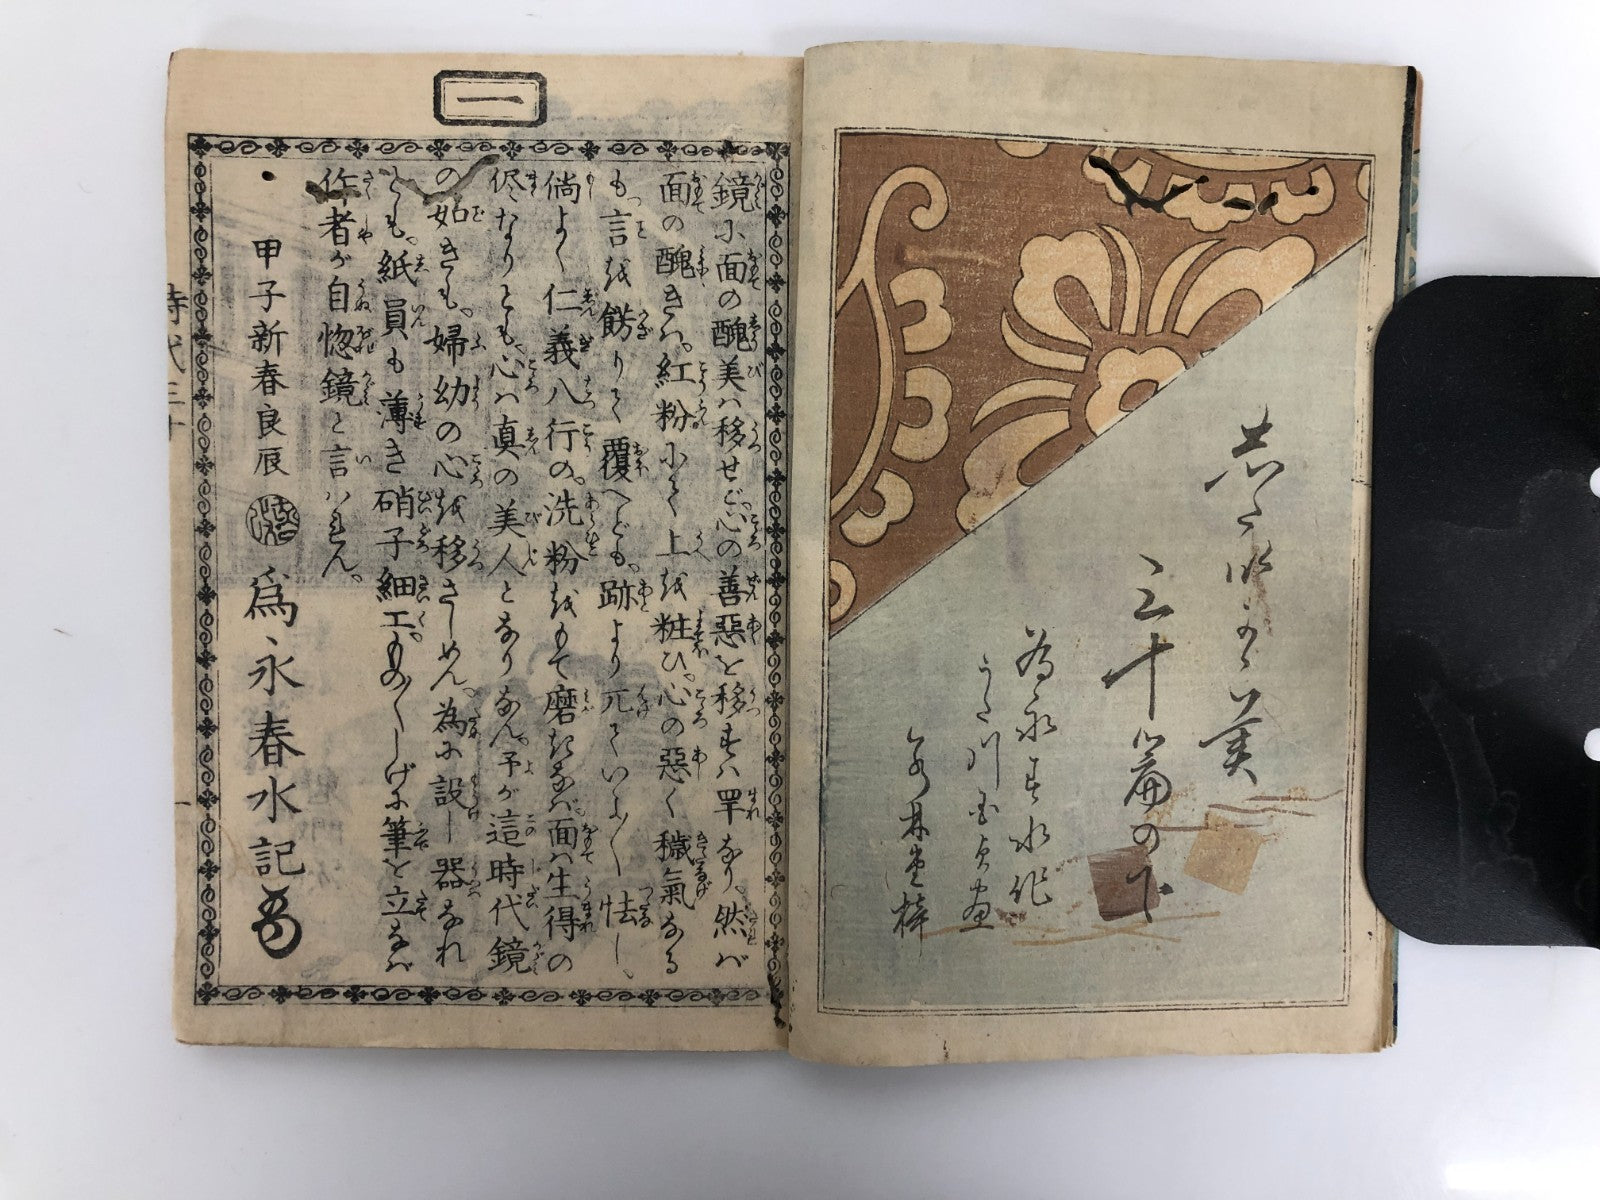 三十篇の下
為永春水作
うた川国貞画
一
鏡に面の醜美は移せど心の善惡を移すは罕なり。然ば
面の醜きは。紅粉にて上を粧ひ。心の惡く穢氣なる
も言を餝りて覆へども。跡より兀ていよ〳〵怯し。
倘よく仁義八行の。洗粉をもて磨きなば。面は生得の
侭なりとも。心は真の美人となりなん。予が這時代鏡
の如きも。婦幼の心を移さしめん。為に設し器なれ
ども。紙員も薄き硝子細工。もの〳〵しげに筆を立なば
作者が自惚鏡と言はれん。
甲子新春良辰
為永春水記
時代三十
一